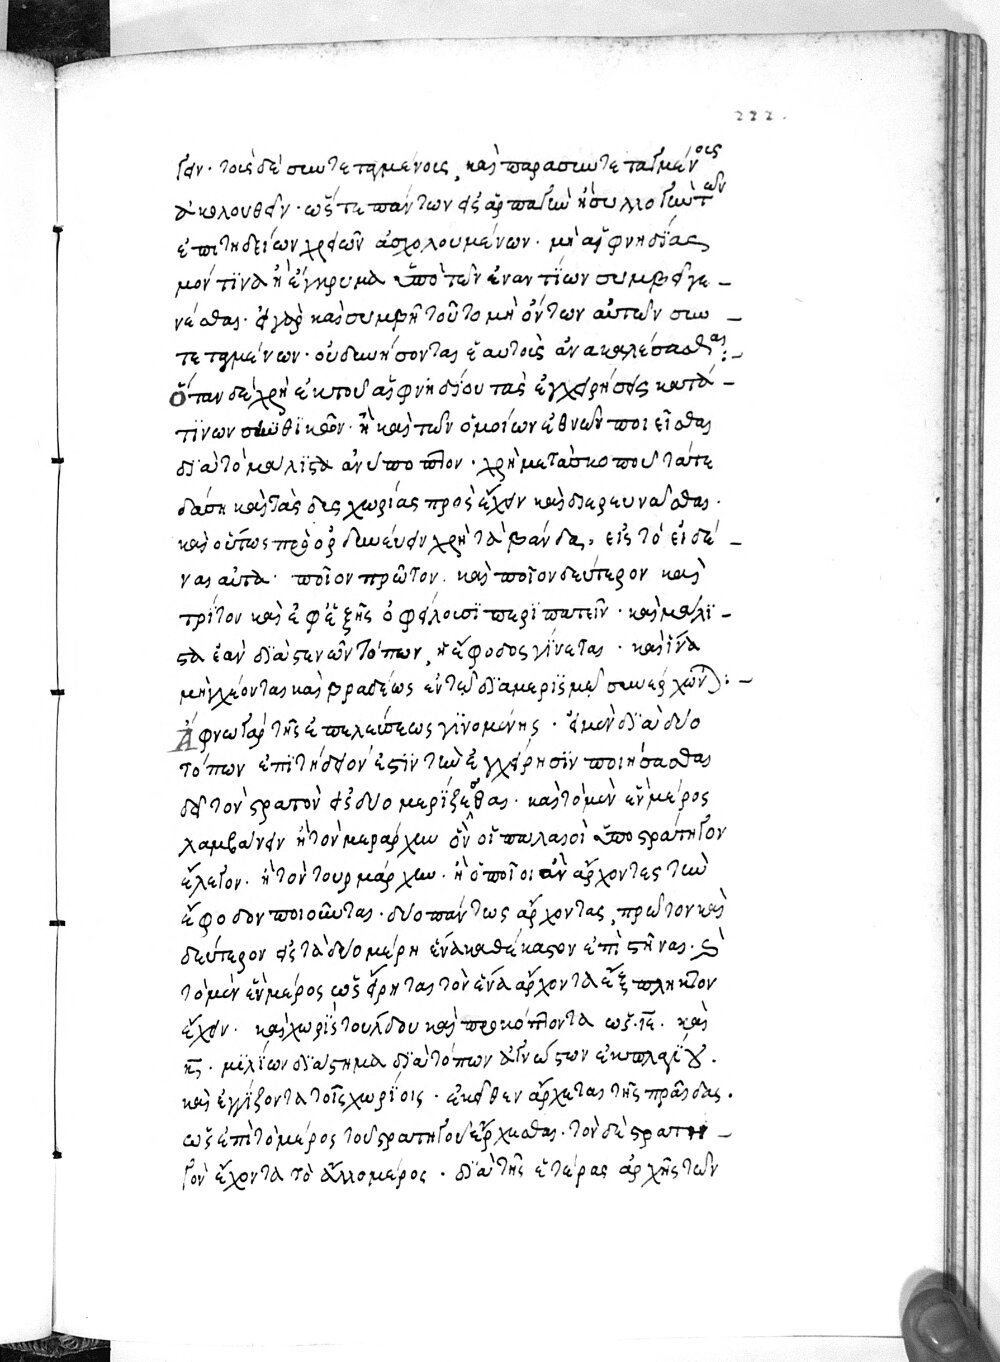 222.
γεῖν· τοὺς δὲ συντεταγμένοις, καὶ παρασυντεταγμένοις
ἀκολουθεῖν· ὥστε πάντων εἰς ἁρπαγὴν ἢ συλλογὴν τῶν
ἐπιτηδείων χρειῶν ἀσχολουμένων· μὴ αἰφνηδίας
μόν τινα ἢ ἔγκρυμα ὑπὸ τῶν ἐναντίων συμβῇ γε –
νέσθαι· εἰ γὰρ καὶ συμβῇ τοῦτο μὴ ὄντων αὐτῶν συν –
τεταγμένων· οὐ δυνήσονται ἑαυτοῖς ἀνακαλέσασθαι:–
Ὅταν δὲ χρὴ ἐκ τοῦ αἰφνηδίου τὰς ἐγχειρήσεις κατά –
τινων σκυθικῶν· ἢ καὶ τῶν ὁμοίων ἐθνῶν ποιεῖσθαι
διὰ τὸ μάλιστα ἀνύποπτον· χρὴ μετὰ σκοποῦ τά τε
δάση καὶ τὰς δυσχωρίας προσέχειν καὶ διερευνᾶσθαι·
καὶ οὕτως προορδινεύειν χρὴ τὰ βάνδα, εἰς τὸ εἰδέ –
ναι αὐτά· ποῖον πρῶτον· καὶ ποῖον δεύτερον καὶ
τρίτον καὶ ἐφεξῆς ὀφείλουσι περιπατεῖν· καὶ μάλι –
στα ἐὰν διὰ στενῶν τόπων, ἡ ἔφοδος γίνεται· καὶ ἵνα
μὴ χέονται καὶ βραδέως ἐν τῷ διαμερισμῷ συνέρχωνται:–
Ἄφνω γὰρ τῆς ἐπελεύσεως γινομένης· εἰ μὲν διὰ δύο
τόπων ἐπιτήδειόν ἐστιν τὴν ἐγχείρησιν ποιήσασθαι
δεῖ τὸν στρατὸν εἰς δύο μερίζεσθαι· καὶ τὸ μὲν ἓν μέρος
λαμβάνειν ἢ τὸν μεράρχην ὃν οἱ παλαιοὶ ὑποστράτηγον
ἔλεγον· ἢ τὸν τουρμάρχην· ἢ ὁποῖοι ἂν ἄρχοντες τὴν
ἔφοδον ποιοῦνται· δύο πάντως ἄρχοντας, πρῶτον καὶ
δεύτερον εἰς τὰ δύο μέρη ἕνα καθ' ἕκαστον ἐπιστῆναι· καὶ
τὸ μὲν ἓν μέρος ὡς εἴρηται τὸν ἕνα ἄρχοντα ἔξπληκτον
ἔχειν· καὶ χωρὶς τούλδου καὶ προκόπτοντα ὡς ιε· καὶ
κ· μιλίων διάστημα διὰ τόπων ἀγνώστων ἐκ πλαγίου·
καὶ ἐγγίζοντα τοῖς χωρίοις· ἐκεῖθεν ἄρχεται τῆς πραίδας·
ὡς ἐπὶ τὸ μέρος τοῦ στρατηγοῦ ἔρχεσθαι· τὸν δὲ στρατη –
γὸν ἔχοντα τὸ ἄλλο μέρος· διὰ τῆς ἑτέρας ἀρχῆς τῶν